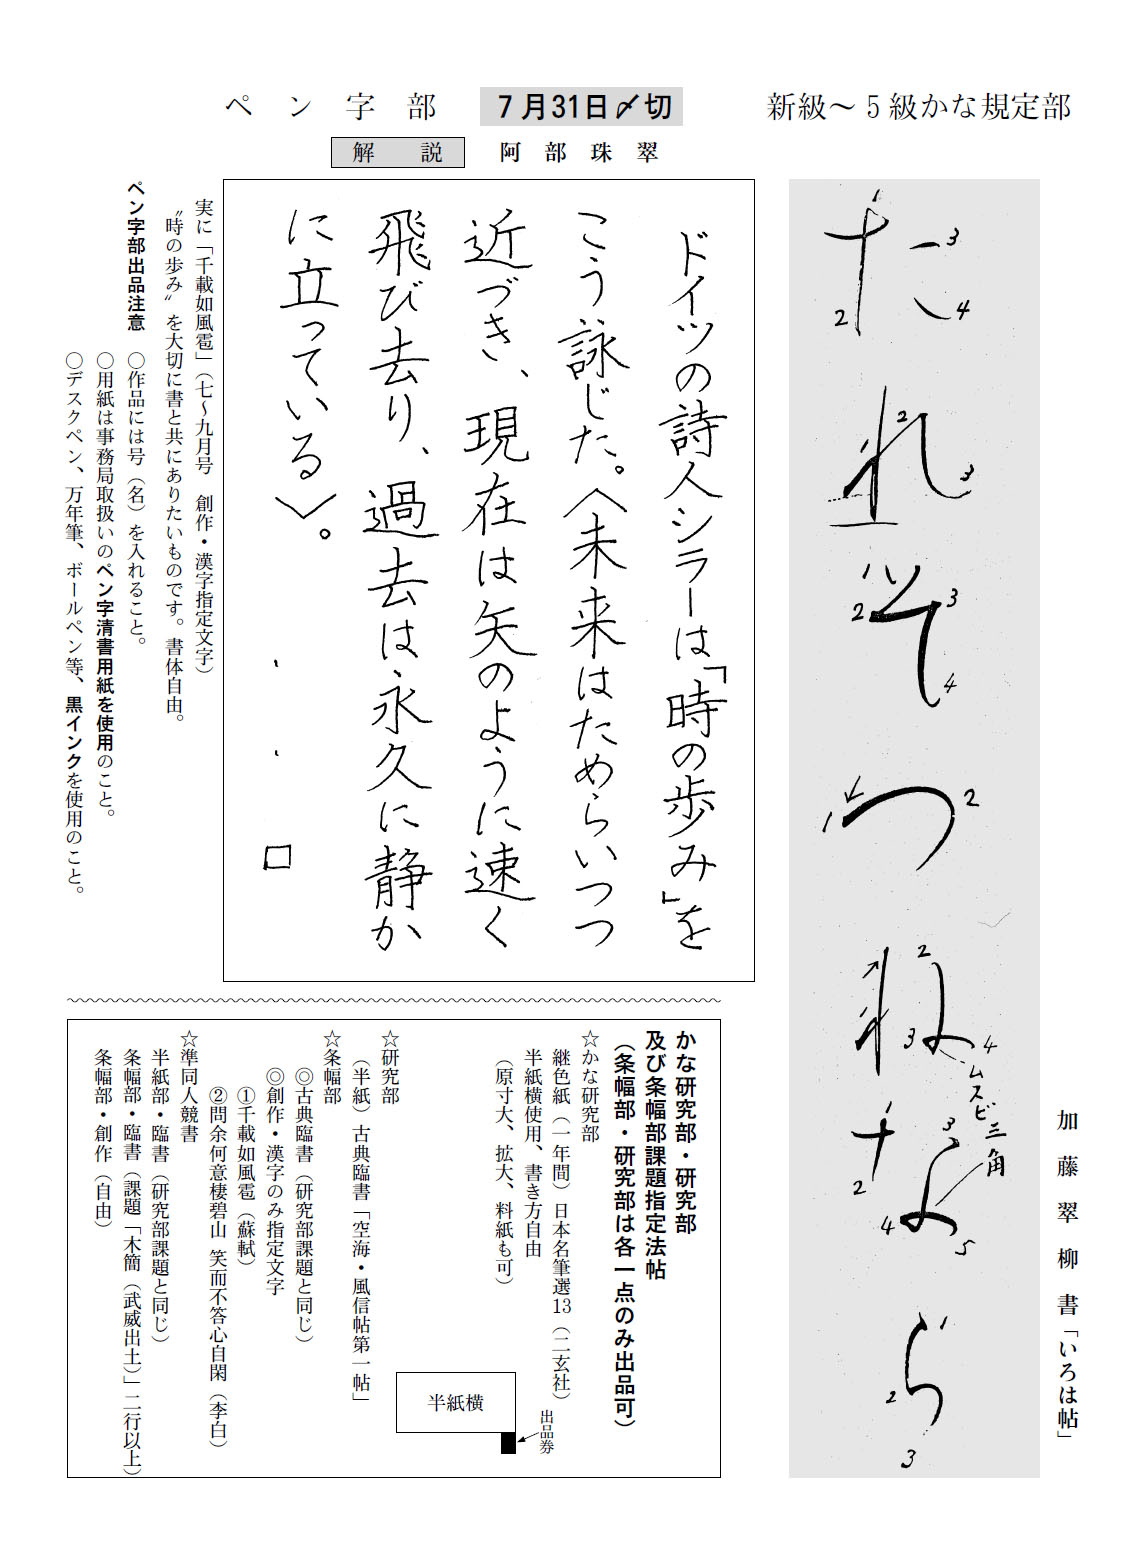 新級〜5級かな規定部
加藤翠柳書「いろは帖」
た
れ
そ
つ
ね
な
ら
ムスビ三角
ペン字部
7月31日〆切
解説
阿部珠翠
ドイツの詩人シラーは「時の歩み」を
こう詠じた。〈未来はためらいつつ
近づき、現在は矢のように速く
飛び去り、過去は永久に静か
に立っている〉。
実に「千載如風雹」(七〜九月号 創作・漢字指定文字)
〝時の歩み〟を大切に書と共にありたいものです。書体自由。
ペン字部出品注意
○作品には号(名)を入れること。
○用紙は事務局取扱いのペン字清書用紙を使用のこと。
○デスクペン、万年筆、ボールペン等、黒インクを使用のこと。
かな研究部・研究部
及び条幅部課題指定法帖
(条幅部・研究部は各一点のみ出品可)
☆かな研究部
継色紙(一年間)日本名筆選13(二玄社)
半紙横使用、書き方自由
(原寸大、拡大、料紙も可)
半紙横
出品券
☆研究部
(半紙)古典臨書「空海・風信帖第一帖」
☆条幅部
◎古典臨書(研究部課題と同じ)
◎創作・漢字のみ指定文字
①千載如風雹(蘇軾)
②問余何意棲碧山 笑而不答心自閑(李白)
☆準同人競書
半紙部・臨書(研究部課題と同じ)
条幅部・臨書(課題「木簡(武威出土)」二行以上)
条幅部・創作(自由)